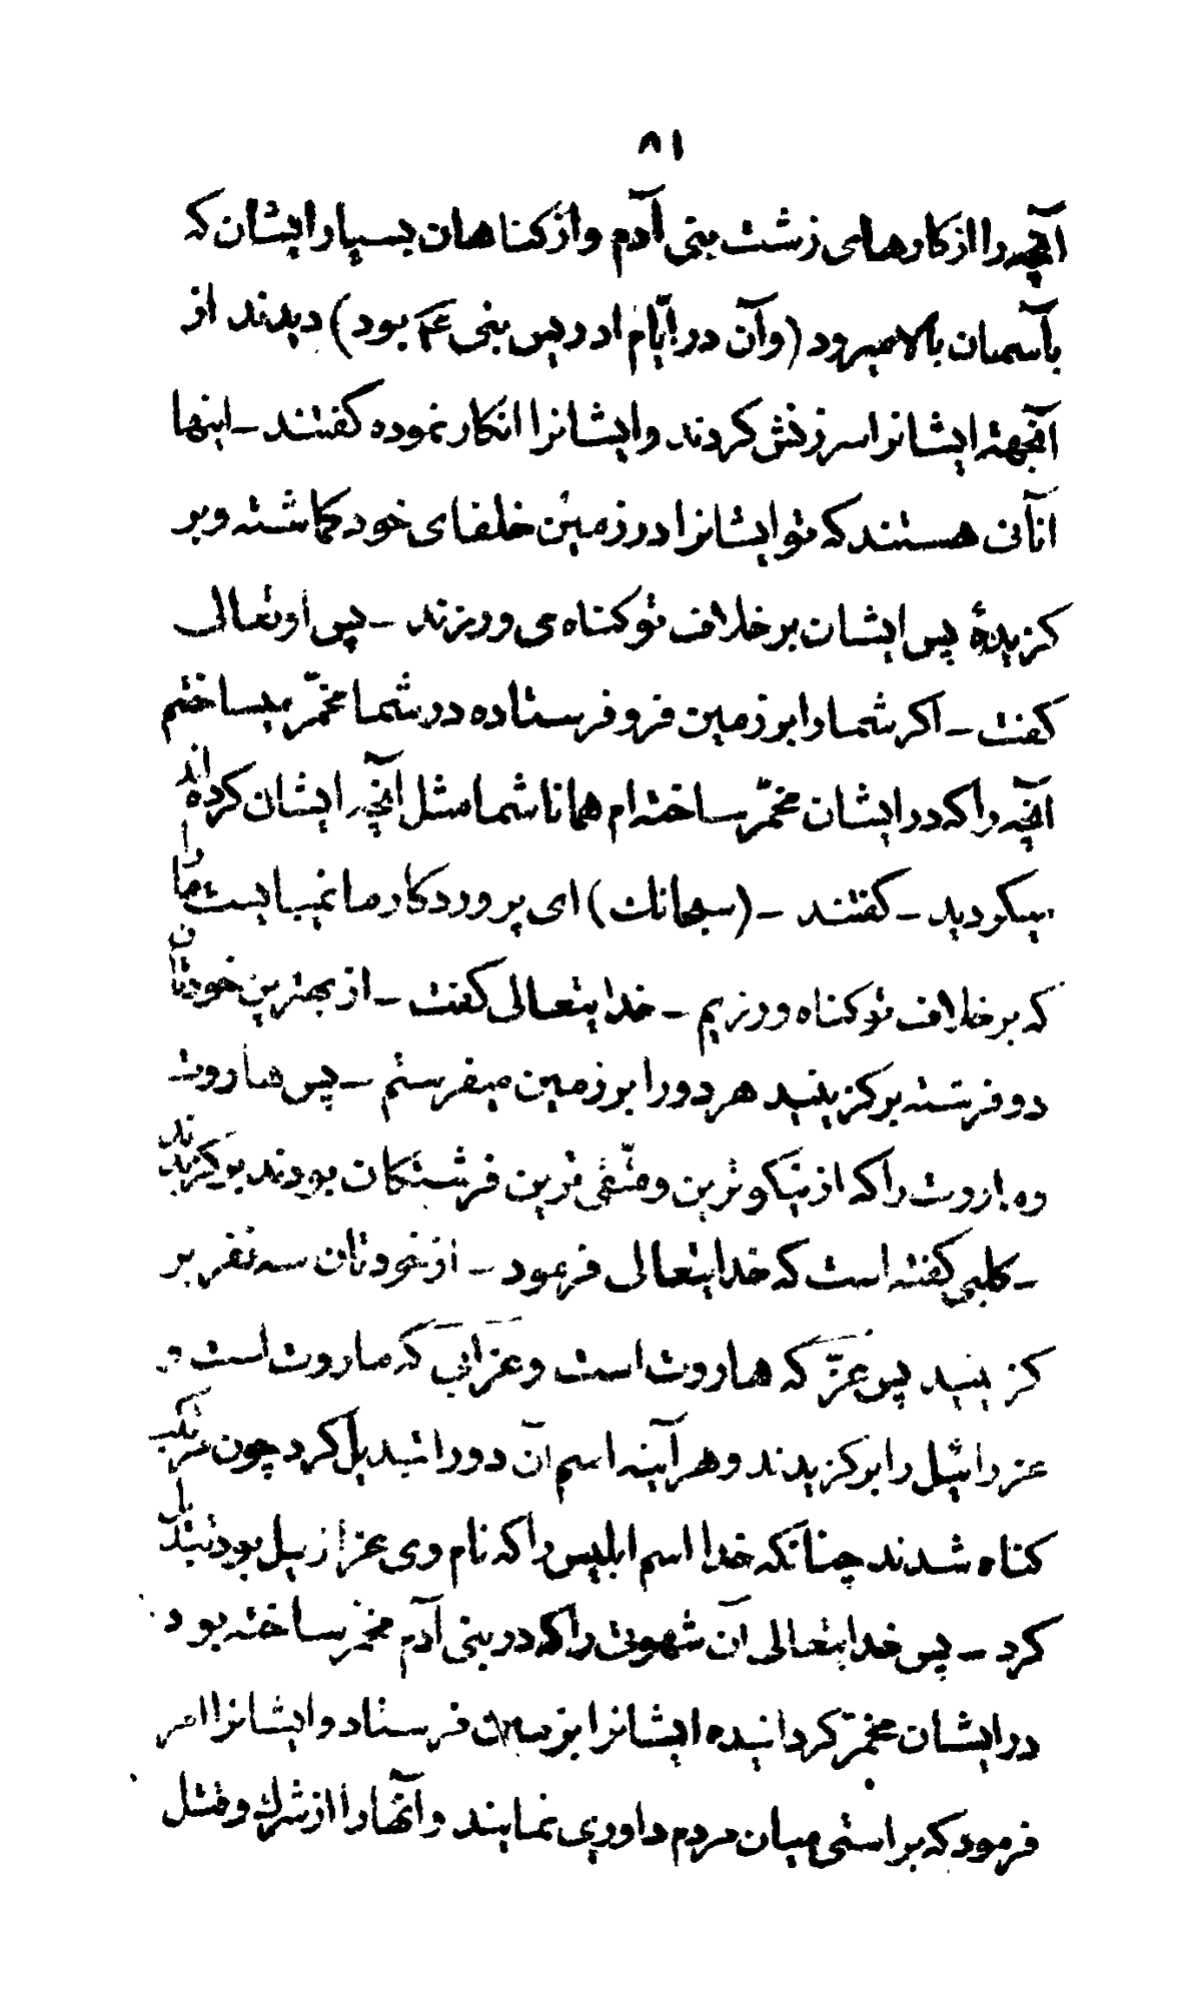 ۸۱
آنچه را از کارهای زشت بنی آدم و از کناهان بسیار ایشان که
بآسمان بالا میرود (وآن در ایّام ادریس بنی عم بود) دیدند از
آنجهة ایشانرا سرزنش کردند و ایشانرا انکار نموده کفتند ـ اینها
آنانی هستند که تو ایشانرا در زمین خلفای خود کماشته و بر
کزیدهٔ پس ایشان بر خلاف تو کناه می ورزند ـ پس او تعالی
کفت ـ اکر شما را بر زمین فرو فرستاده در شما مخمّر میساختم
آنچه را که در ایشان مخمّر ساخته ام همانا شما مثل آنچه ایشان کرده اند
میکردید ـ کفتند ـ (سبحانك) ای پروردکار ما نمیبایست ما را
که بر خلاف تو کناه ورزیم ـ خدایتعالی کفت ـ از بهترین خودتان
دو فرشته برکزینید هر دو را بر زمین میفرستم ـ پس هاروت
وماروت را که از نیکوترین و متّقی ترین فرشتکان بودند برکزیدند
ـ کلبی کفته است که خدایتعالی فرمود ـ از خودتان سه نفر بر
کزینید پس عزّ که هاروت است و عزابی که ماروت است و
عزرائیل را برکزیدند و هر آینه اسم آن دو را تبدیل کرد چون مرتکب
کناه شدند چنانکه خدا اسم ابلیس را که نام وی عزازیل بود تبدیل
کرد ـ پس خدایتعالی آن شهوتی را که در بنی آدم مخمّر ساخته بود
در ایشان مخمّر کردانیده ایشانرا بزمین فرستاد و ایشانرا امر
فرمود که براستی میان مردم داوری نمایند و آنها را از شرك و قتل